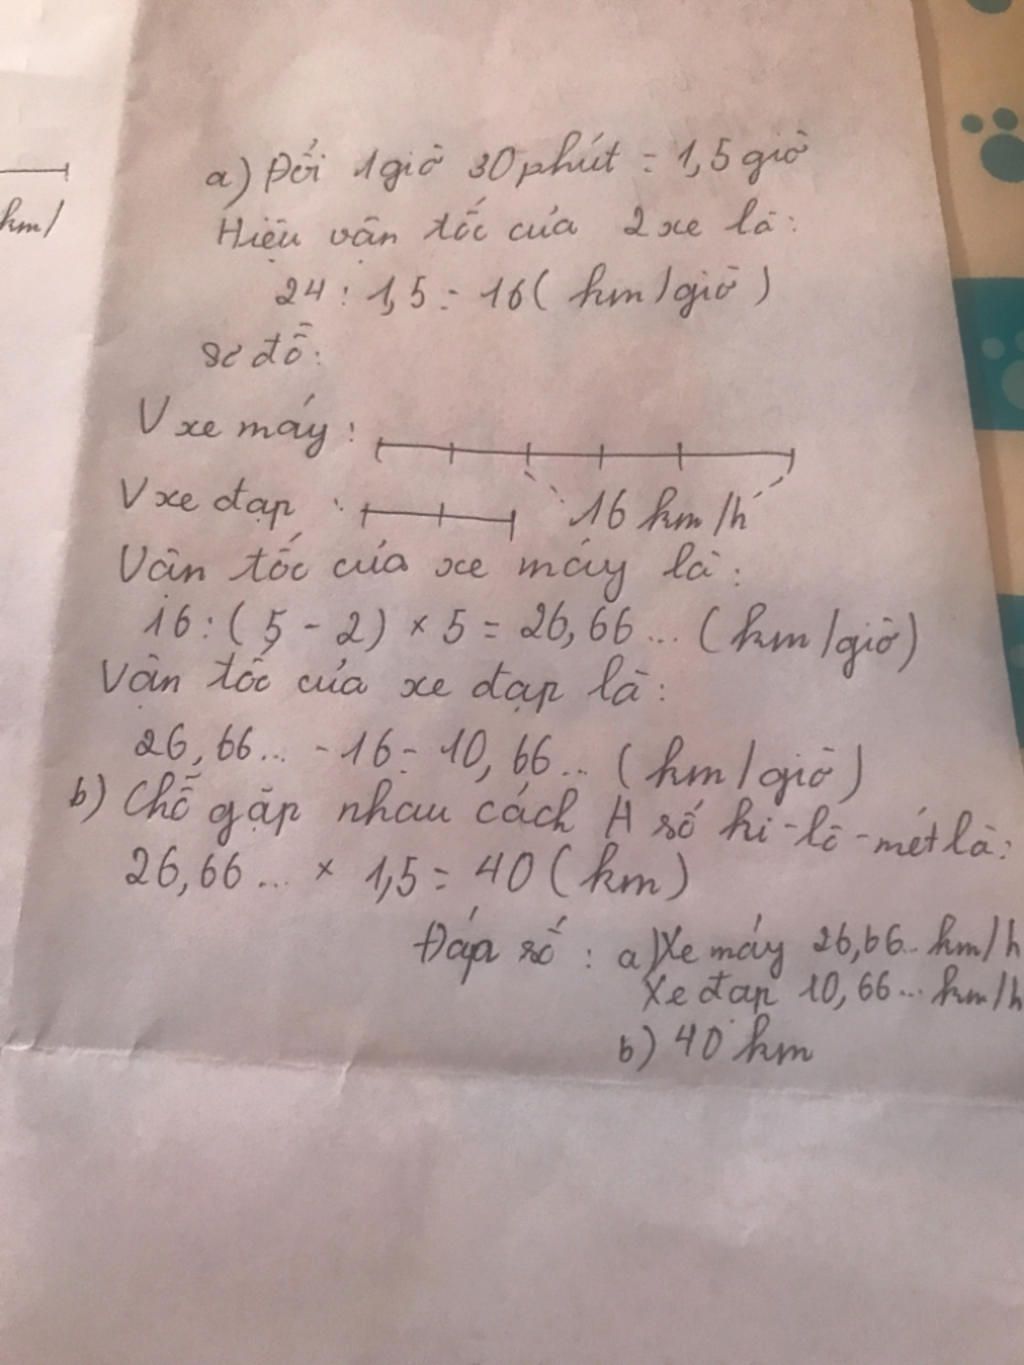 km/
a) Đổi 1 giờ 30 phút = 1,5 giờ
Hiệu vận tốc của 2 xe là:
24 : 1,5 = 16 ( km/giờ )
Sơ đồ:
V xe máy :
V xe đạp :
16 km/h
Vận tốc của xe máy là :
16 : ( 5 - 2 ) × 5 = 26,66... ( km/giờ )
Vận tốc của xe đạp là :
26,66... - 16 = 10,66... ( km/giờ )
b) Chỗ gặp nhau cách A số ki-lô-mét là:
26,66... × 1,5 = 40 ( km )
Đáp số : a) Xe máy 26,66.. km/h
Xe đạp 10,66... km/h
b) 40 km